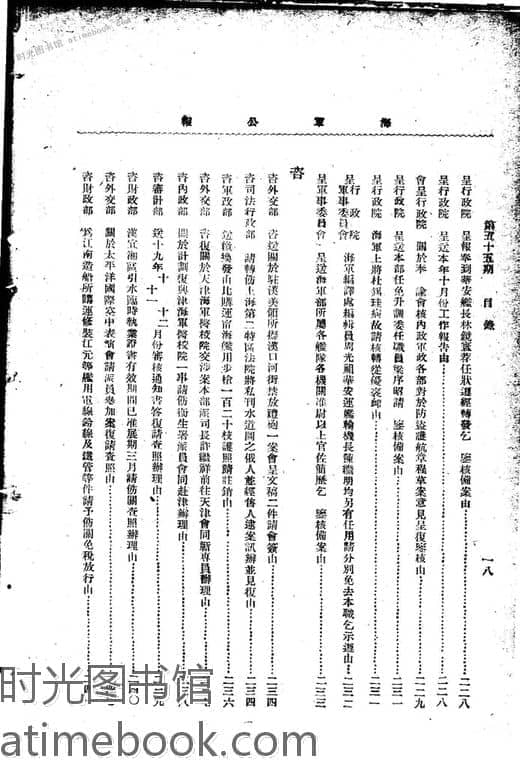 海軍公報
第五十五期 目錄 一八
呈行政院 呈報奉到華安艦長林鏡寰荐任狀遵經轉發乞 鑒核備案由 二二八
呈行政院 呈送本年十月份工作報告由 二二八
會呈行政院 關於奉 諭會核內政軍政各部對於防盜護航章程草案意見呈復鑒核由 二二九
呈行政院 呈送本部任免升調委任職員 序昭請 鑒核備案由 二三一
呈行政院 海軍上將杜錫珪病故請核轉從優褒卹由 二三一
呈行政院 軍事委員會 海軍編譯處編輯員周光 華安運艦輪機長陳 明均另有任用請分別免去本職乞示遵由 二三二
呈軍事委員會 呈送海軍部所屬各艦隊各機關准尉以上官佐簡歷乞 鑒核備案由 二三三
咨
咨外交部 咨送關於駐漢美領所擬漢口河街禁放禮砲一案會呈文稿二件請會簽由 二三四
咨司法行政部 請轉飭上海第二特區法院將私刊水道圖之俄人 經傳人逮案訊辦並見復由 二三四
咨軍政部 咨送 發由北購運甯海艦用步槍一百二十枝護照請註銷由 二三六
咨外交部 咨復關於天津海軍醫校院交涉案本部派司長許繼祥前往天津會同新專員辦理由
咨內政部 關於計劃復興津海軍醫校院一事請飭衛生署派員會同赴津辦理由
咨審計部 咨送十九年十 十一 十二月份審核通知書答復請查照辦理由
咨財政部 漢宜湘區引水臨時執業證書有效期間已准展期三月請飭關查照辦理由
咨外交部 關於太平洋國際空中表演會請派員參加案復請查照由
咨財政部 爲江南造船所購運修裝江元等艦用電線紗線及鐵管等件請予飭關免稅放行由
时光图书馆
atimebook.com